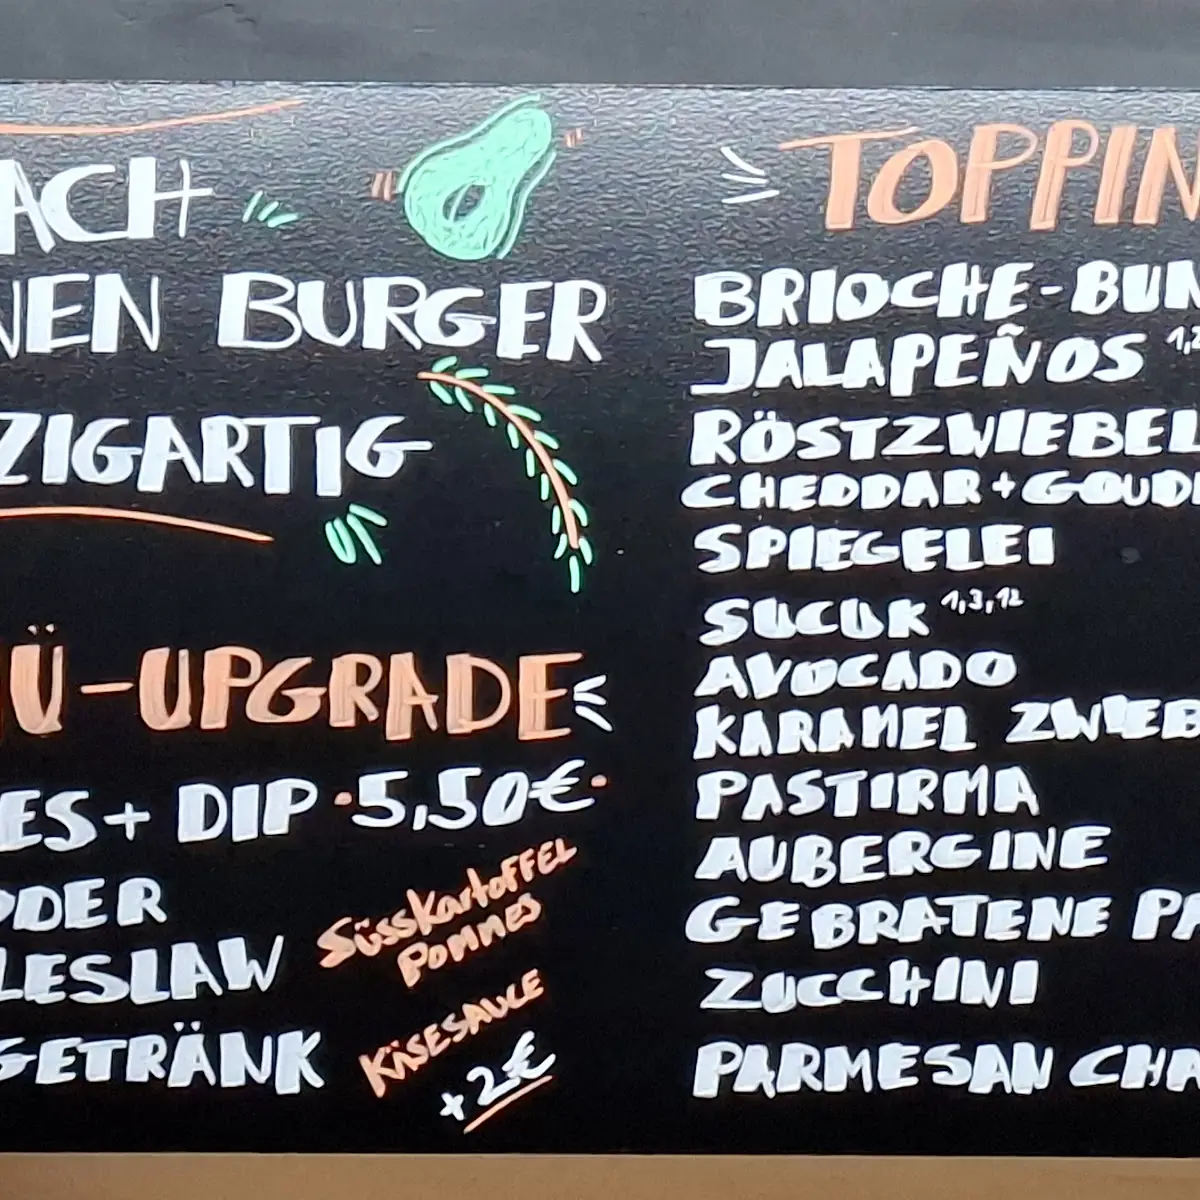 ACH
NEN BURGER
ZIGARTIG
Ü-UPGRADE
ES + DIP ·5,50€·
ODER
LESLAW
GETRÄNK
SÜSSKARTOFFEL
POMMES
KÄSESAUCE
+2€
TOPPIN
BRIOCHE-BUN
JALAPEÑOS 1,2
RÖSTZWIEBEL
CHEDDAR + GOUD
SPIEGELEI
SUCUK 1,3,12
AVOCADO
KARAMEL ZWIEB
PASTIRMA
AUBERGINE
GEBRATENE PA
ZUCCHINI
PARMESAN CHA